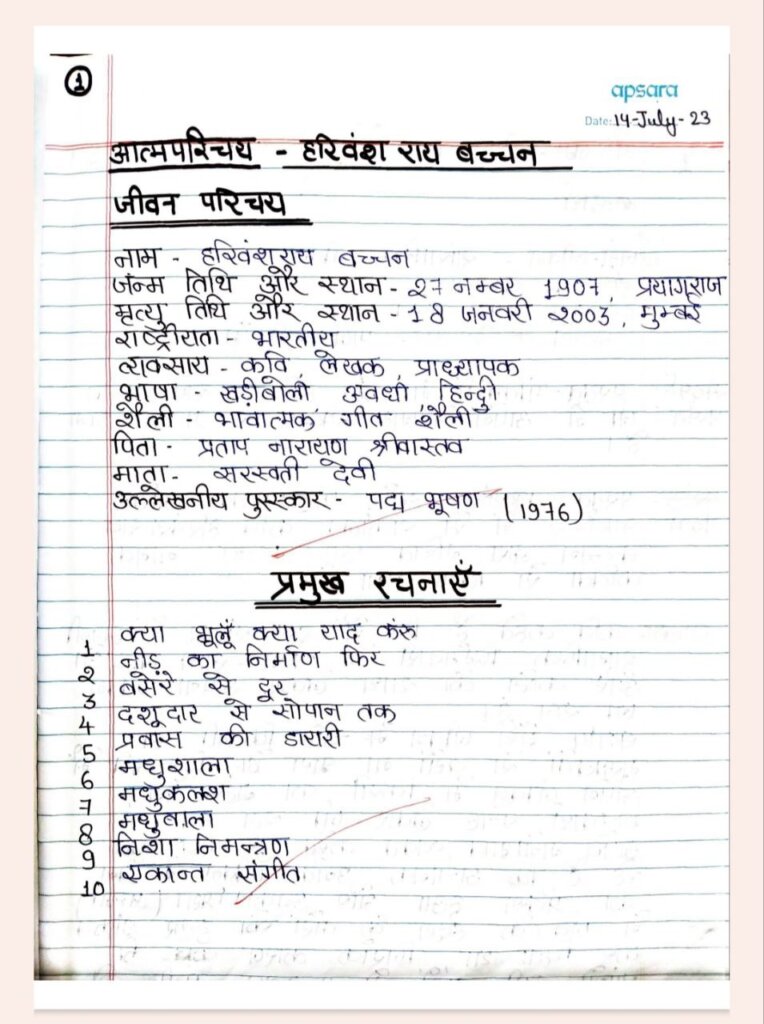 1
apsara
Date: 14-July-23
आत्मपरिचय - हरिवंश राय बच्चन
जीवन परिचय
नाम - हरिवंशराय बच्चन
जन्म तिथि और स्थान - 27 नम्बर 1907, प्रयागराज
मृत्यु तिथि और स्थान - 18 जनवरी 2003, मुम्बई
राष्ट्रीयता - भारतीय
व्यवसाय - कवि, लेखक, प्राध्यापक
भाषा - खड़ीबोली अवधी हिन्दी
शैली - भावात्मक गीत शैली
पिता - प्रताप नारायण श्रीवास्तव
माता - सरस्वती देवी
उल्लेखनीय पुरस्कार - पद्म भूषण (1976)
प्रमुख रचनाएँ
1 क्या भूलूँ क्या याद करु
2 नीड़ का निर्माण फिर
3 बसेरे से दूर
4 दशूदार से सोपान तक
5 प्रवास की डायरी
6 मधुशाला
7 मधुकलश
8 मधुबाला
9 निशा निमन्त्रण
10 एकान्त संगीत